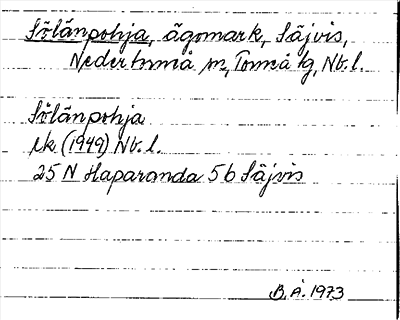 Sölänpohja, ägomark, Säjvis,
Nedertorneå sn, Torneå tg, Nb. l.
Sölänpohja
ek (1949) Nb. l.
25 N Haparanda 5b Säjvis
B. Å. 1973